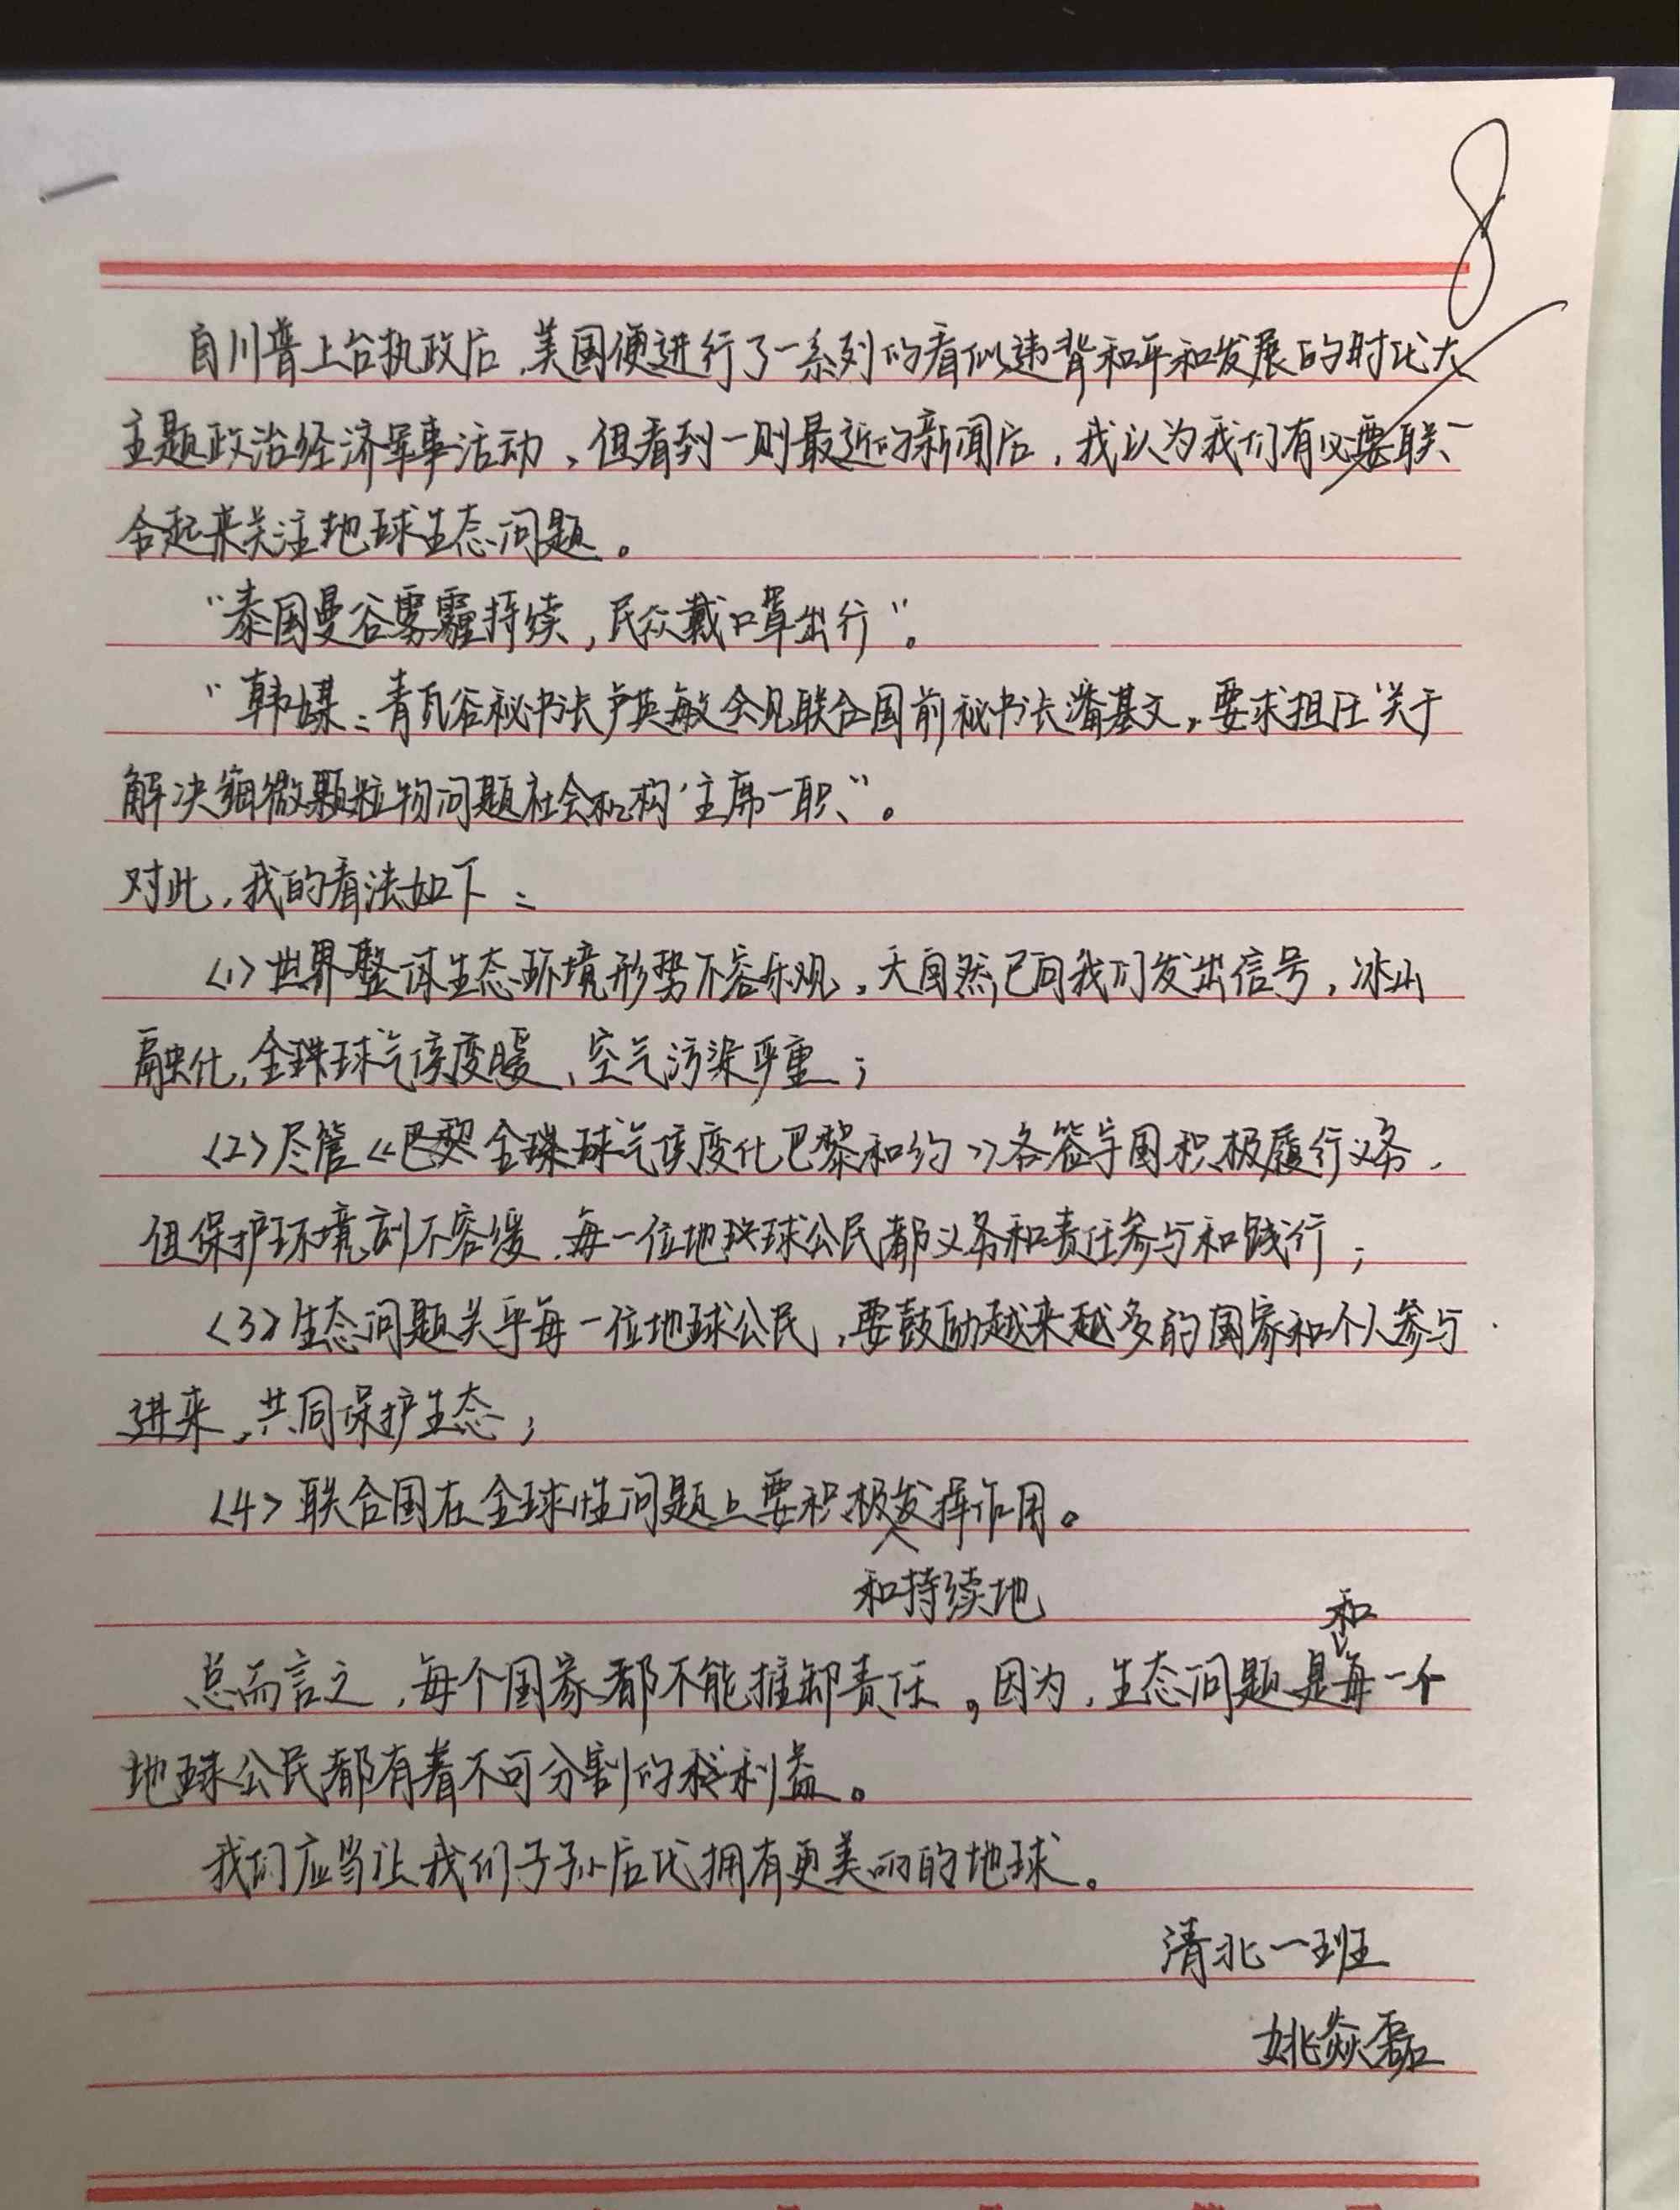 8
自川普上台执政后,美国便进行了一系列的看似违背和平和发展的时代大
主题政治经济军事活动,但看到一则最近的新闻后,我认为我们有必要联
合起来关注地球生态问题。
“泰国曼谷雾霾持续,民众戴口罩出行”。
“韩媒:青瓦谷秘书长卢英敏会见联合国前秘书长潘基文,要求担任‘关于
解决细微颗粒物问题社会机构’主席一职”。
对此,我的看法如下:
<1>世界整体生态环境形势不容乐观,大自然已向我们发出信号,冰山
融化,全球气候变暖、空气污染严重;
<2>尽管《全球气候变化巴黎和约》各签字国积极履行义务,
但保护环境刻不容缓,每一位地球公民都义务和责任参与和践行;
<3>生态问题关乎每一位地球公民,要鼓励越来越多的国家和个人参与
进来,共同保护生态;
<4>联合国在全球性问题上要积极发挥作用。
和持续地
和
总而言之,每个国家都不能推卸责任,因为,生态问题是每一个
地球公民都有着不可分割的利益。
我们应当让我们子孙后代拥有更美丽的地球。
清北一班
姚焱磊